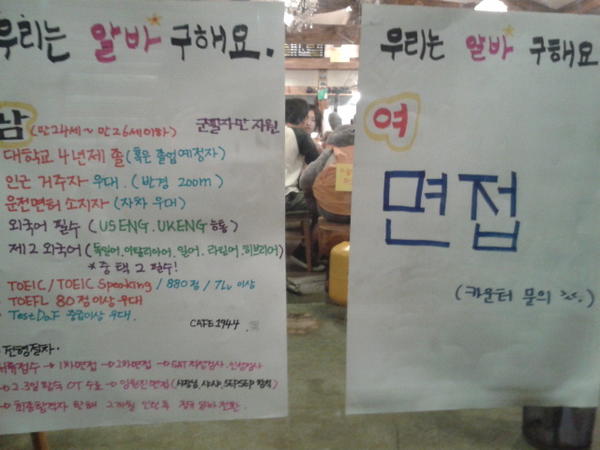 우리는 알바 구해요.
남 (만24세~만26세이하) 군필자만 지원
대학교 4년제 졸 (혹은 졸업예정자)
인근 거주자 우대. (반경 200m)
운전면허 소지자 (자차 우대)
외국어 필수 (US ENG. UK ENG 능통)
제2외국어 (독일어. 이탈리아어. 일어. 라틴어. 히브리어)
*중 택 2 필수!
TOEIC/TOEIC Speaking / 880점 / 7Lv 이상
TOEFL 80점 이상 우대
TestDaF 중급이상 우대.
CAFE 1944
전형절차.
서류접수 → 1차면접 → 2차면접 → SAT 직무검사. 인성검사
→ 2.3일 합숙 OT 수료 → 임원진면접
→ 최종합격자 발표 2개월 인턴 후 정규 알바 전환.
우리는 알바 구해요
여
면접
(카운터 문의)